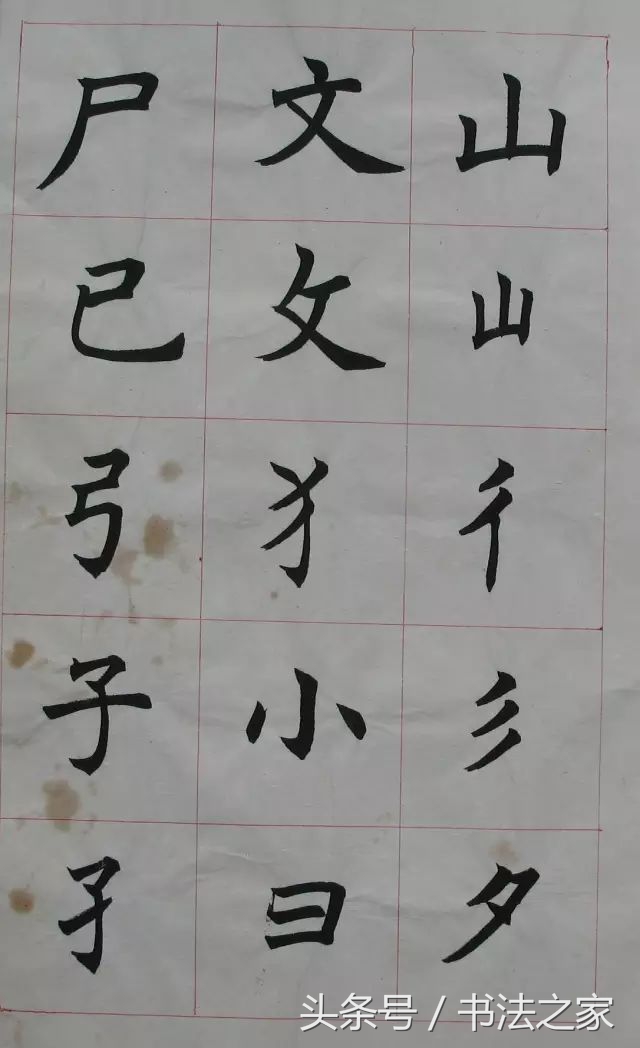 山山彳彡夕
文攵犭小曰
尸已弓子孑
头条号 / 书法之家